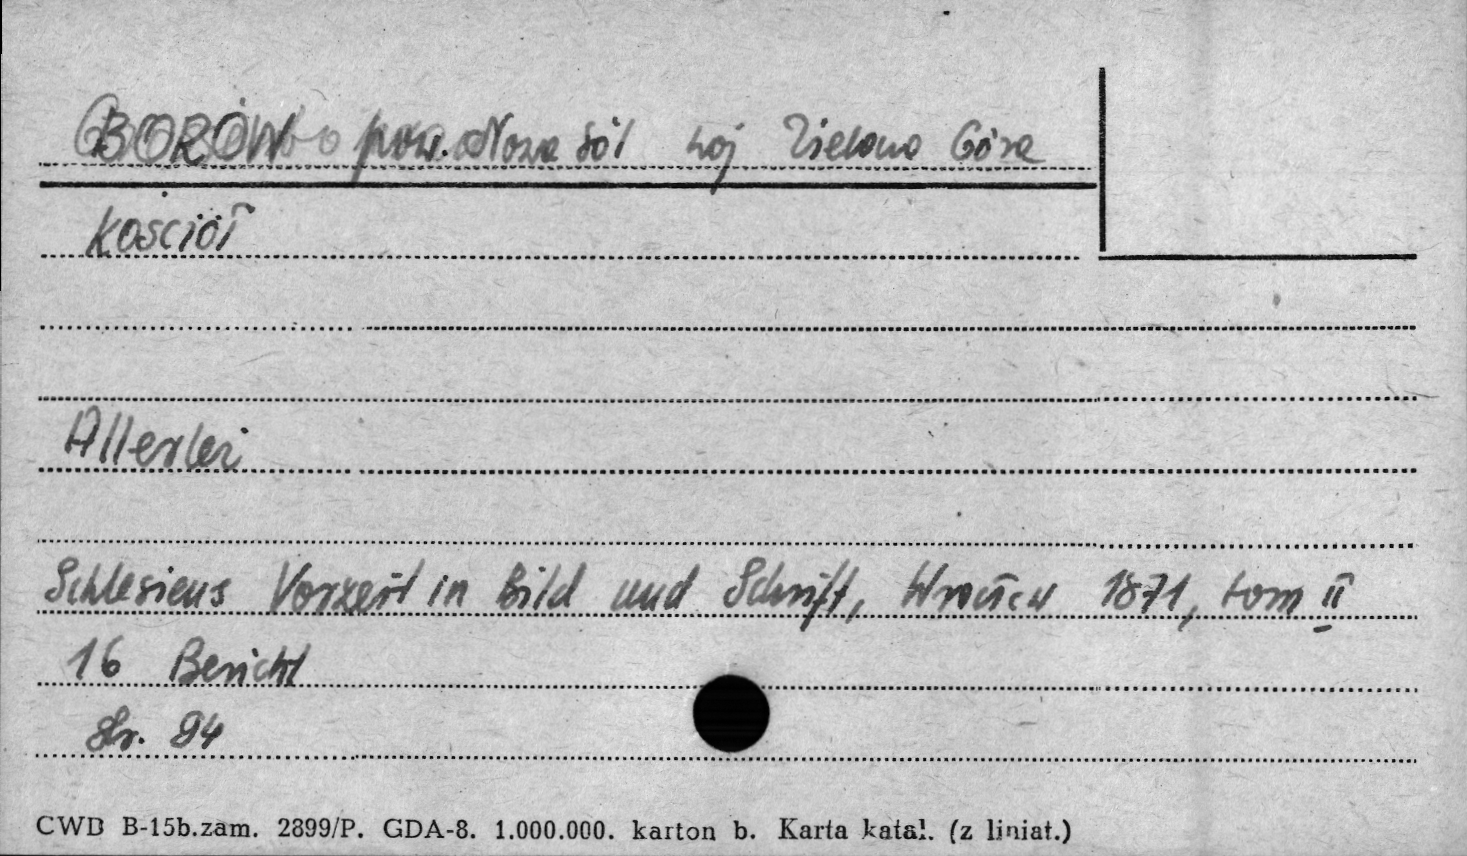 BORÓW pow. Nowa Sól woj Zielona Góra
Kościół
Allerlei
Schlesiens Vorzeit in Bild und Schrift, Wrocław 1871, tom II
16 Bericht
str. 94
CWD B-15b.zam. 2899/P. GDA-8. 1.000.000. karton b. Karta katal. (z liniat.)